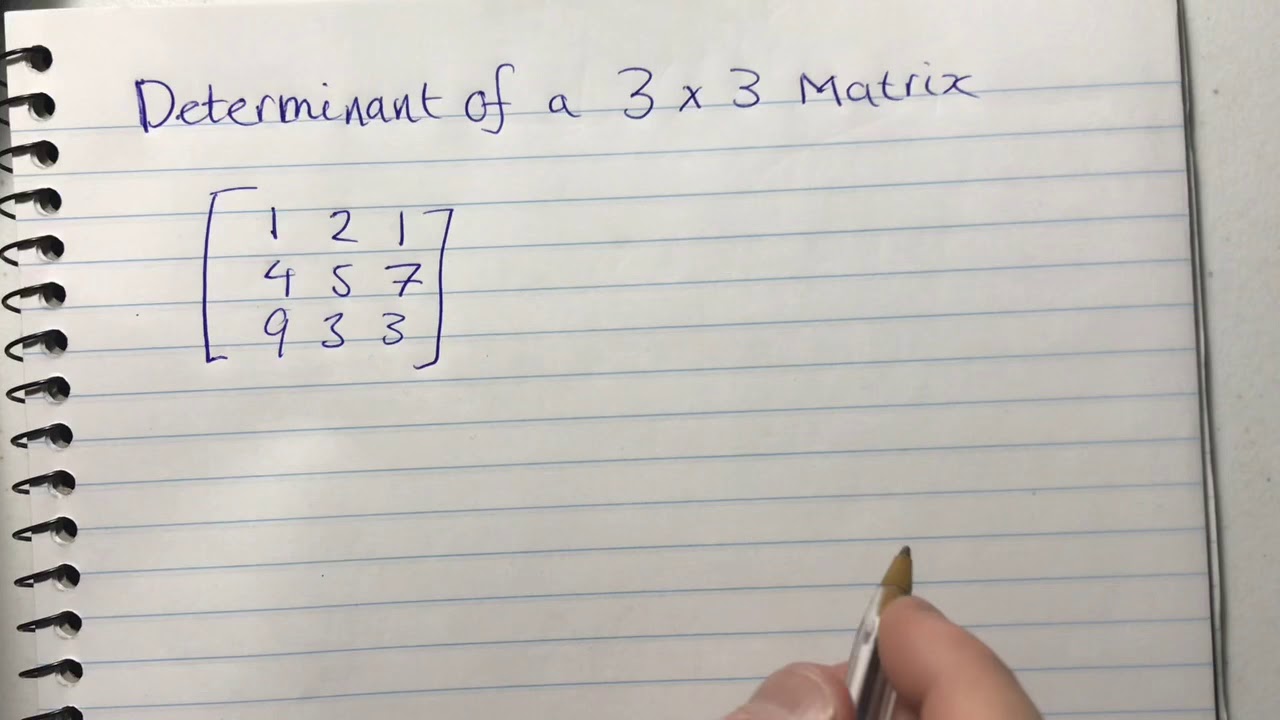 Determinant of a 3 x 3 Matrix
1 2 1
4 5 7
9 3 3